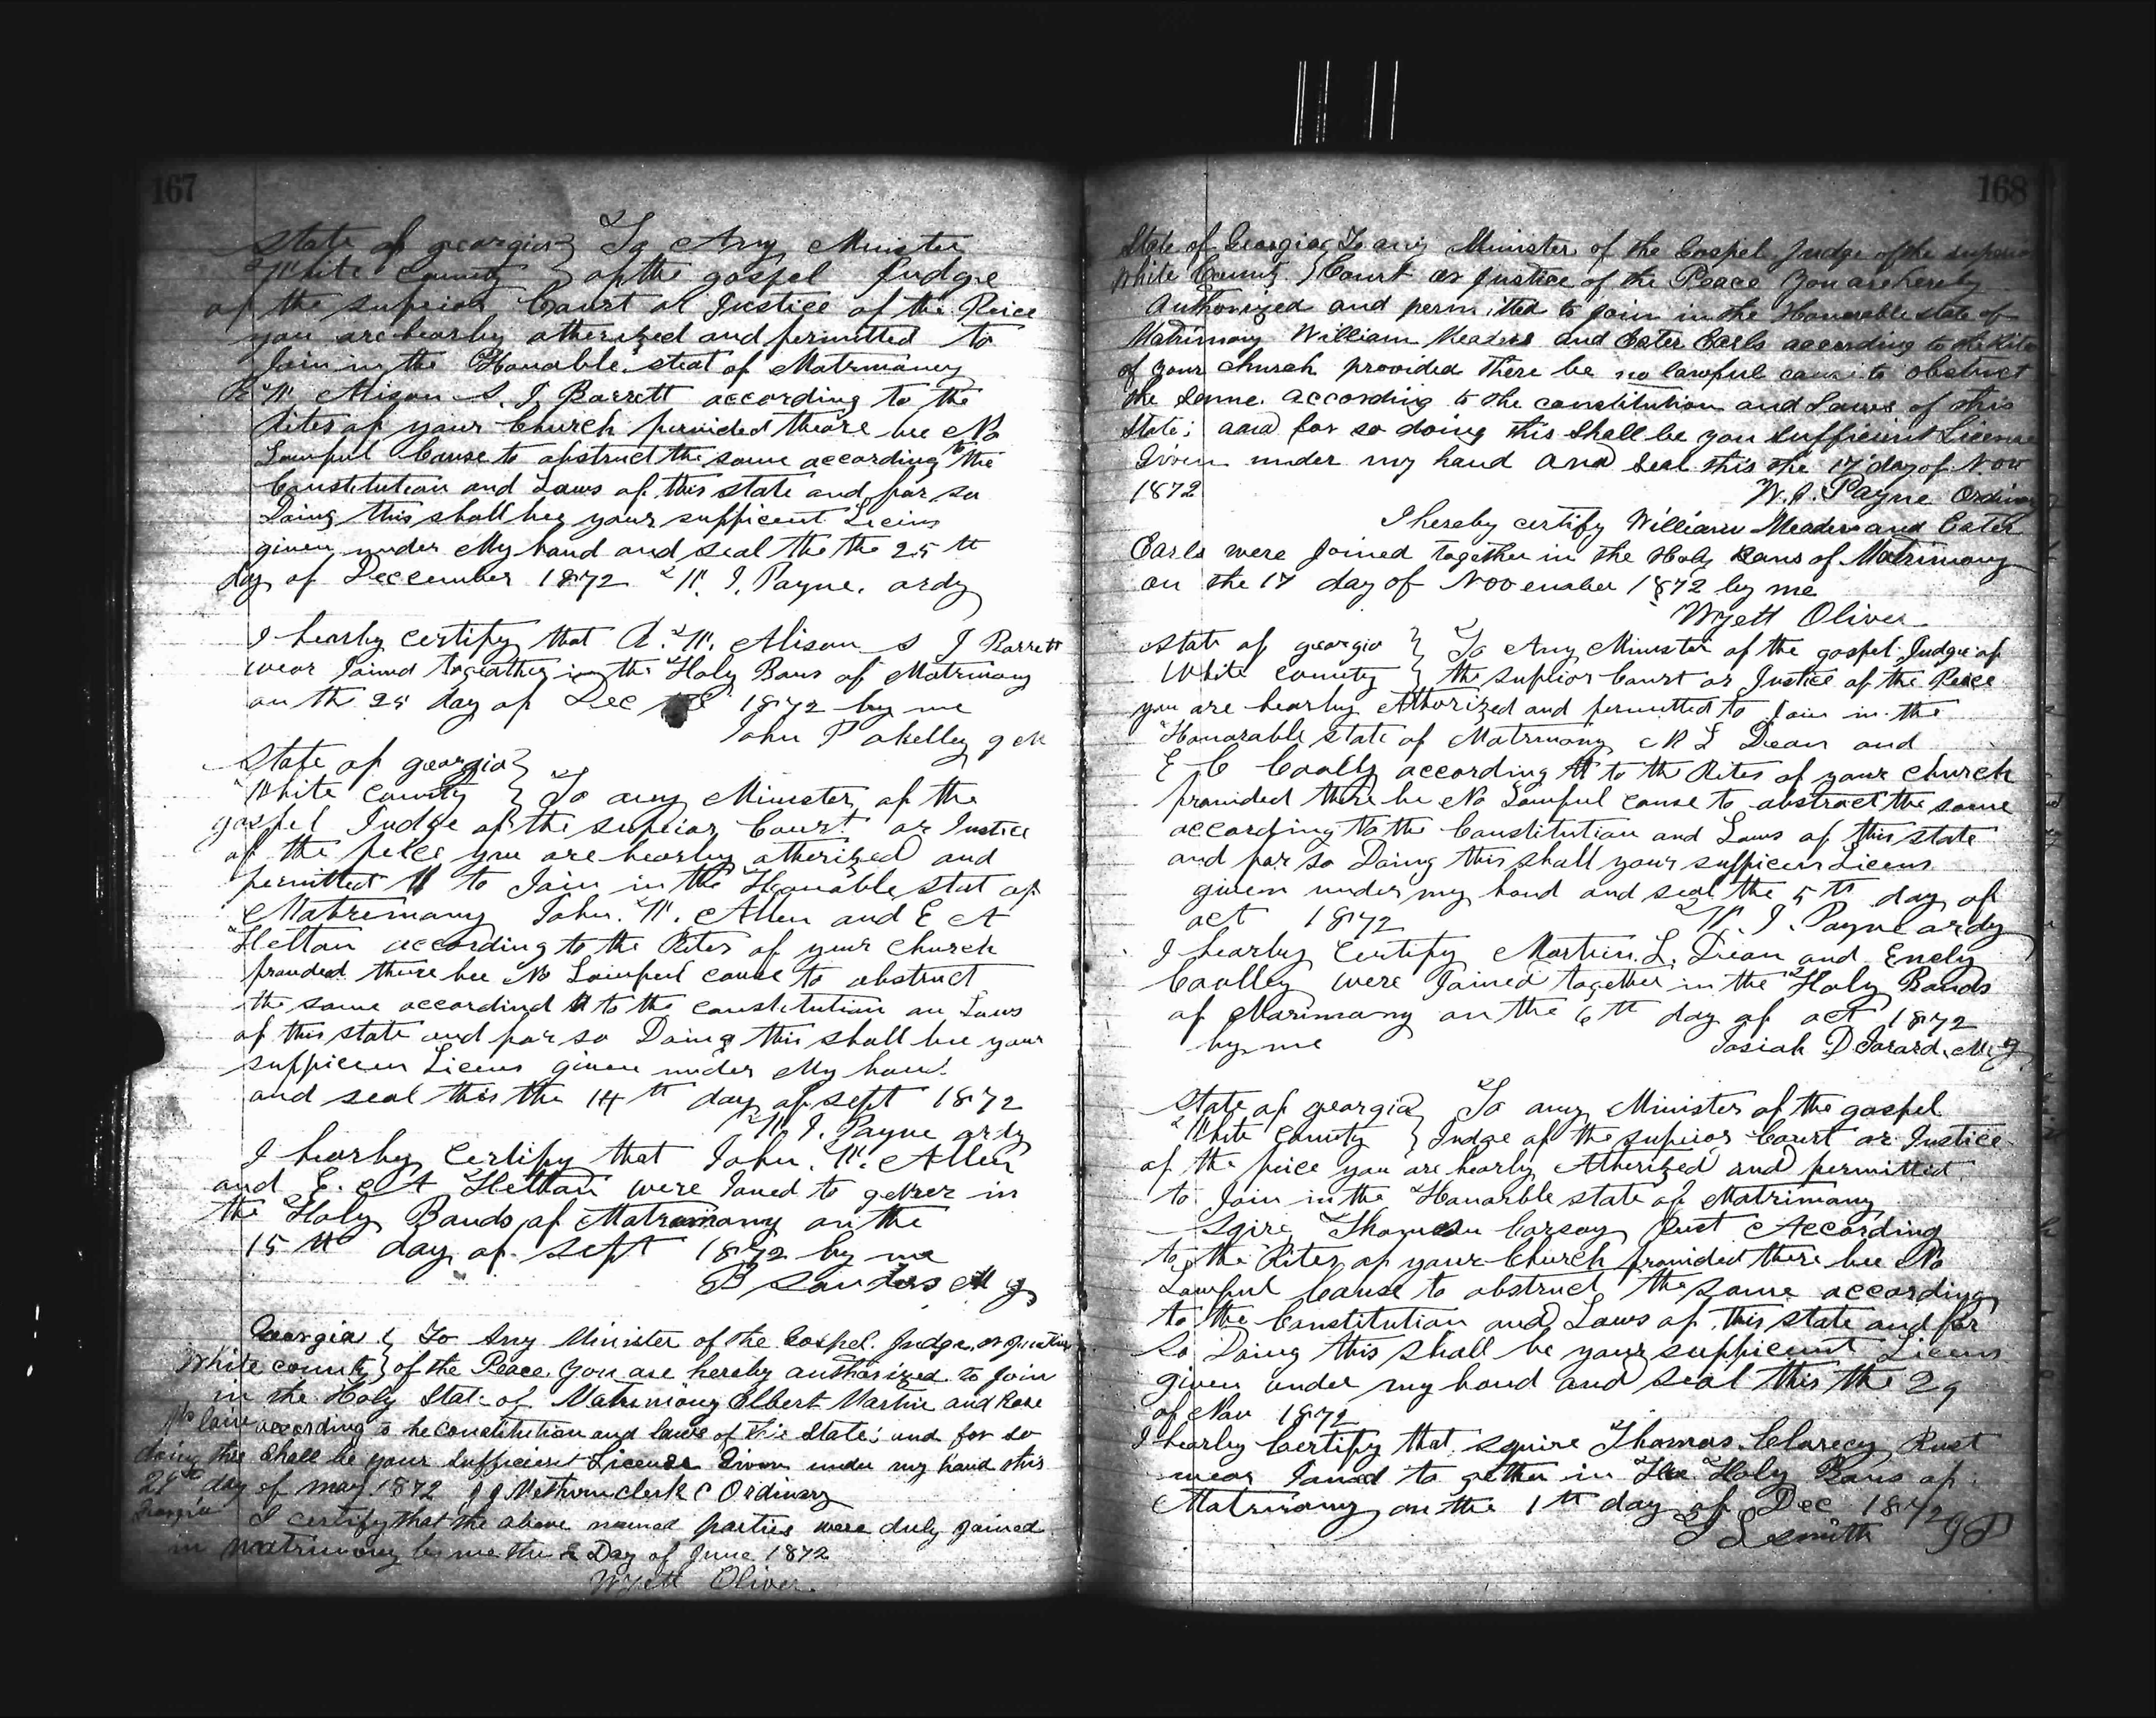 167
State of georgia } To Any Minister
White County } of the gospel Judge
of the supeior Court or Justice of the Peice
you are hearby atherized and permitted to
Join in the Honable steat of Matrimaney
W. Alison S. J Barrett according to the
Rites of your Church pervided theare bee No
Lawful Cause to obstruct the same according to the
Constitution and Laws of this state and for so
Doing this shall bee your sufficent Licins
given under My hand and seal the the 25 th
day of December 1872 W. J. Payne. ordy
I hearby certify that A. W. Alison S J Barrett
wear Joined togeather in the Holy Bans of Matrimony
on the 25 day of Dec 1872 by me
John P okelley
State of georgia }
White County } To any Minester of the
gospel Judge of the supeior Court or Justice
of the peice you are hearby atherized and
permitted to Join in the Honable stat of
Matremany John. W. Allen and E A
Heltan according to the Rites of your Church
provded there bee No Lawful cause to obstruct
the same accordind to the constitution an Laws
of this state and for so Doing this shall bee your
sufficien Licens given under My han
and seal this the 14 th day of sept 1872
W. J. Payne ordy
I hearby Certify that John. W. Allen
and E. A Helttan were Joned to gether in
the Holy Bands of Matramony on the
15 th day of sept 1872 by me
B Sanders M g
Georgia } To Any Minister of the Gospel. Judge. or Justice
White county } of the Peace. You are hereby authorized to join
in the Holy State of Matrimony Elbert Martin and Rose
according to he constitution and laws of the State; and for so
doing this Shall be your Sufficient License Given under my hand this
29th day of may 1872 J J Methvin clerk C Ordinary
Georgia I certify that the above named parties were duly joined
in matrimony by me the 2 Day of June 1872
Wyett Oliver.
168
State of Georgia } To any Minister of the Gospel Judge of the superior
White County } Court or Justice of the Peace You are hereby
Authorized and permitted to join in the Honorable state of
Matrimony William Meaders and Cater Earls according to the Rites
of your church provided there be no lawful cause to obstruct
the Same. according to the constitution and Laws of this
State; and for so doing this Shall be you Sufficient License
Given under my hand and Seal this the 17 day of Nov
1872 W. J. Payne Ordinary
I hereby certify William Meaders and Cater
Earls were joined together in the Holy Bans of Matrimony
on the 17 day of November 1872 by me
Wyett Oliver
State of georgia } To Any Minister of the gospel Judge of
White County } the supior Court or Justice of the Peice
you are hearby Athorized and permitted to Join in the
Honorable state of Matrimony M L Dean and
E C Coolly according to the Rites of your Church
provided there be No Lawful cause to obstract the same
according to the Constitution and Laws of this state
and for so Doing this shall your sufficein Licens
given under my hand and seal the 5 th day of
oct 1872 W. J. Payne ordy
I hearby Certify Martin. L. Dean and Emely
Coolley were Joined together in the Holy Bands
of Marimony on the 6 th day of oct 1872
by me Josiah D Jarard. M. g
State of georgia } To any Minister of the gospel
White County } Judge of the supeior Court or Justice
of the peice you are hearby Atherized and permitted
to Join in the Honarble state of Matrimony
Sqire Thomson Carsey Rust According
to the Rites of your Church provided there bee No
Lawful Cause to obstruct the same according
to the Constitution and Laws of this state and for
so Doing this Shall be your sufficient Licens
given under my hand and seal this the 29
of Nov 1872
I hearby Certify that squire Thomas. Clarecy Rust
wear Joined to gether in the Holy Bans of
Matrimony on the 1 th day of Dec 1872
T L Smith J P